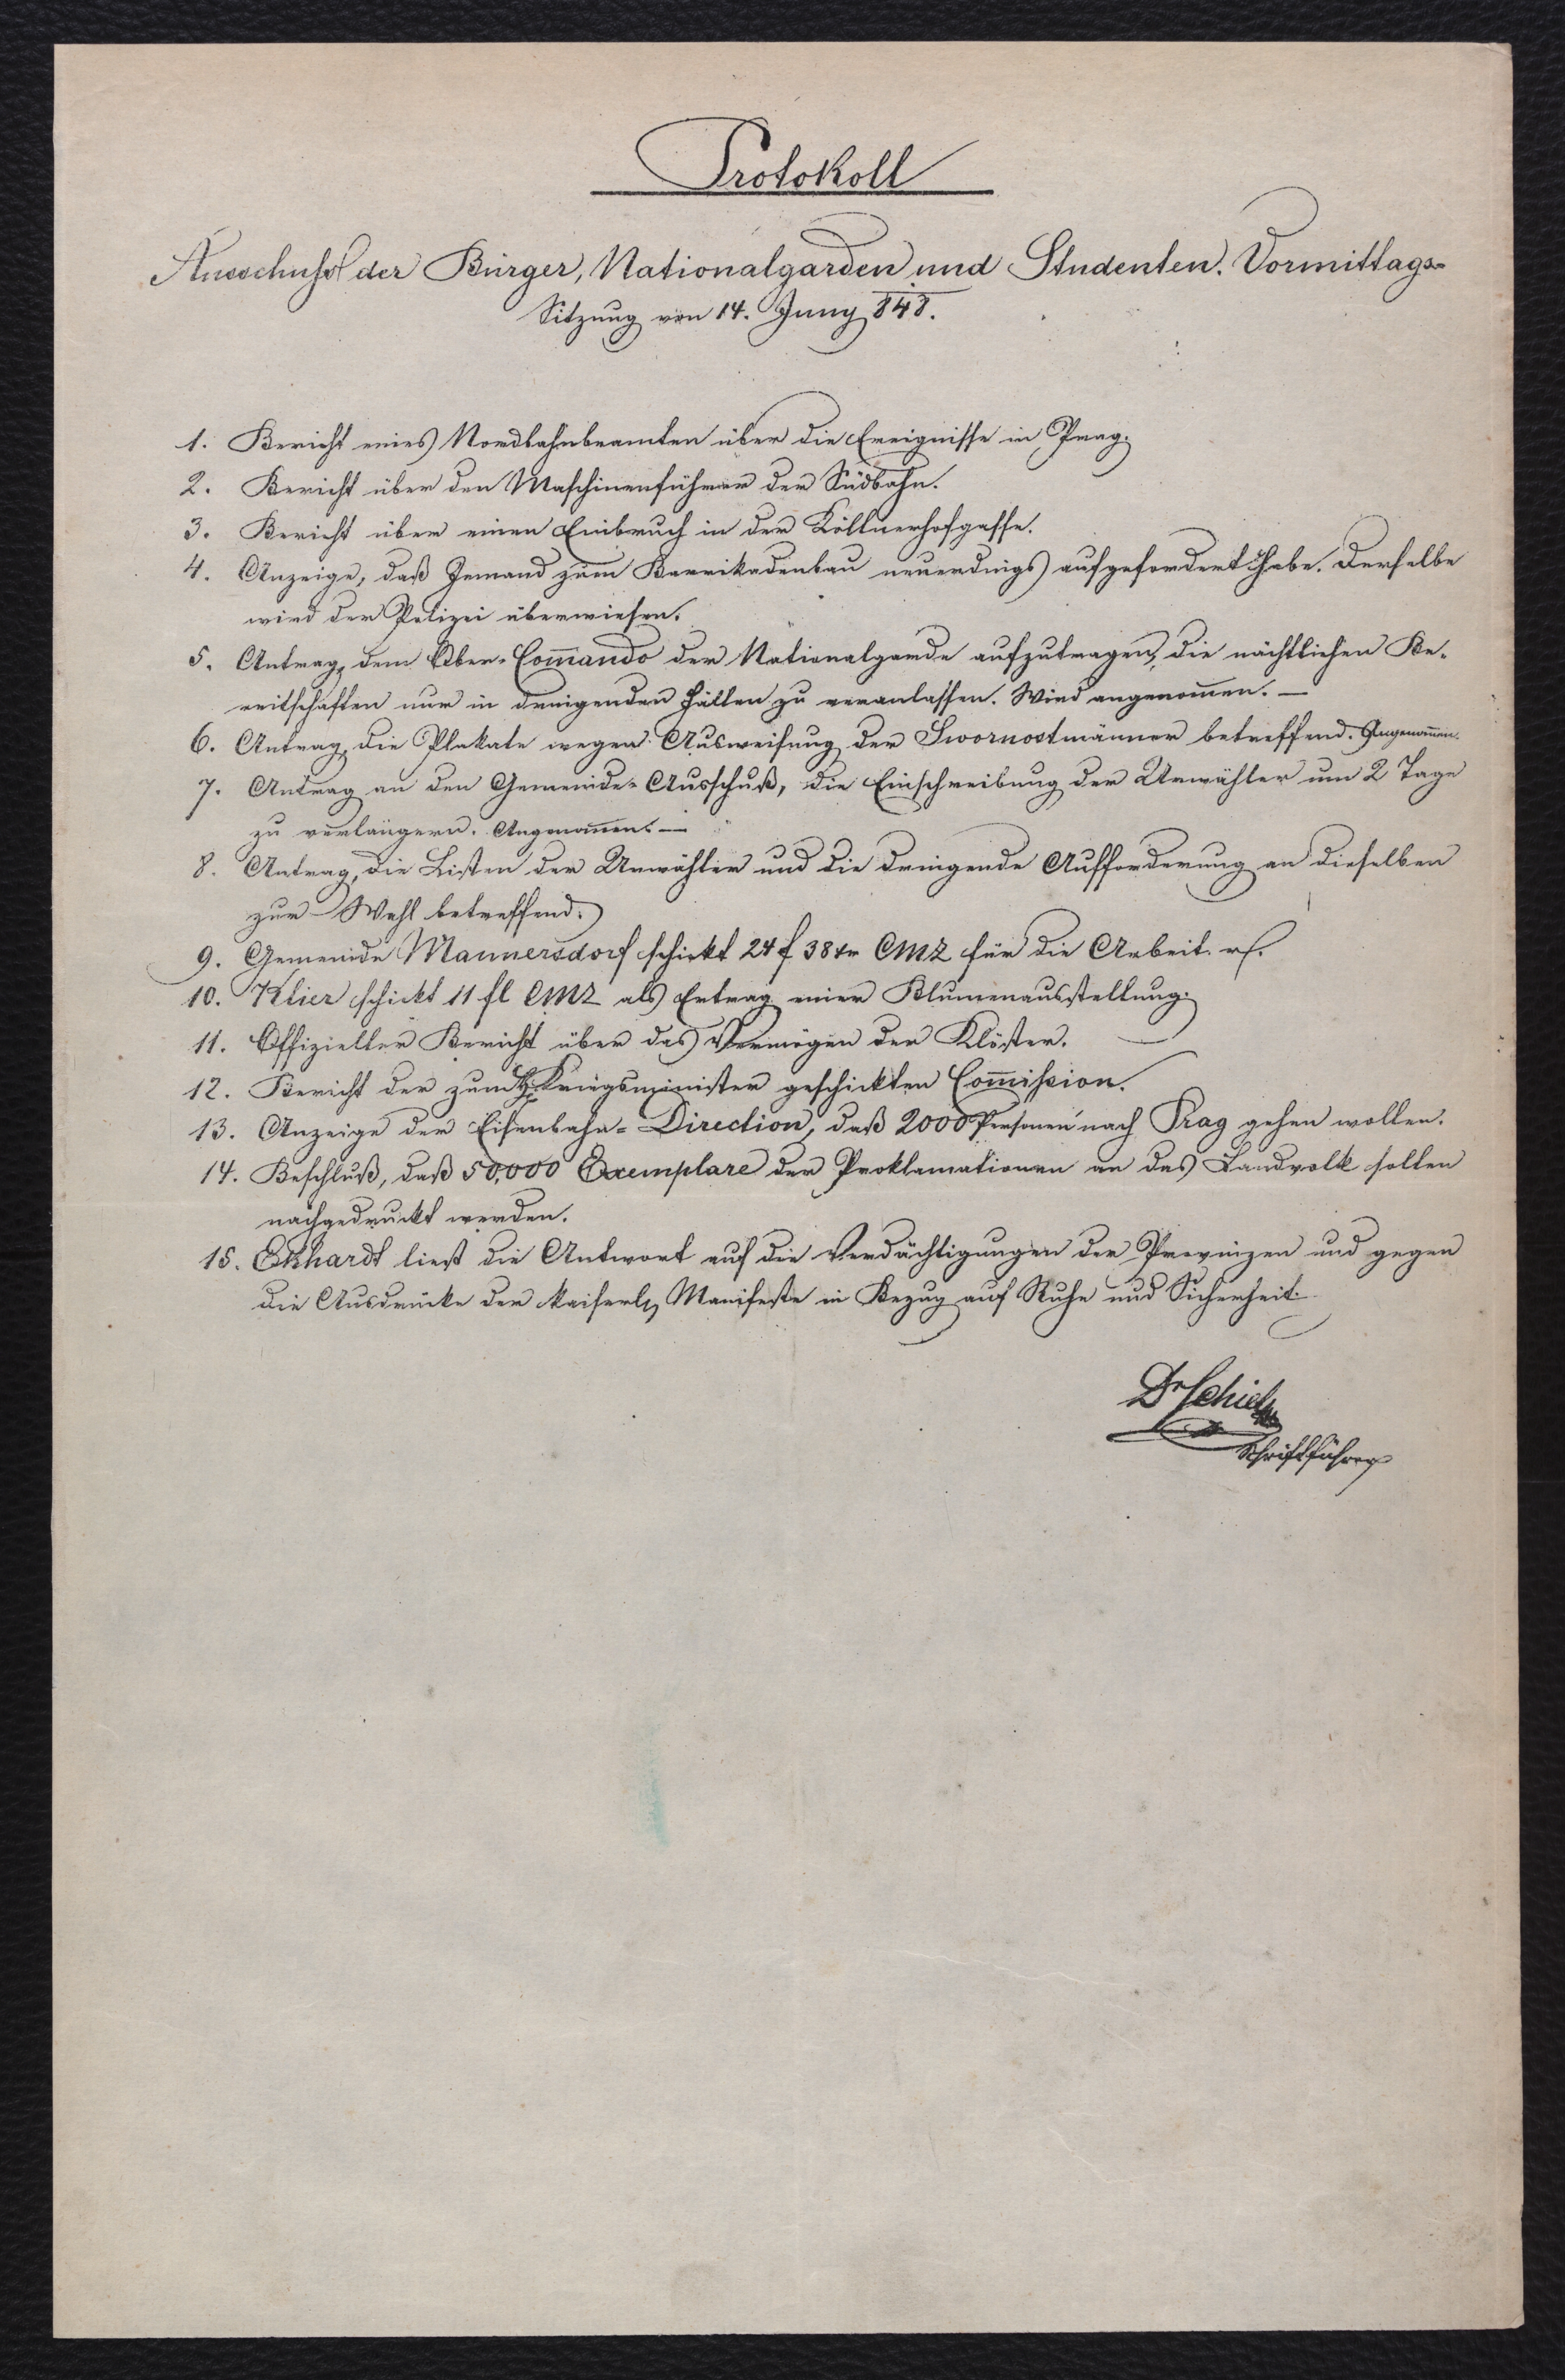 Protokoll
Ausschuß der Bürger, Nationalgarden und Studenten. Vormittags-
Sitzung von 14. Juny 848.
1. Bericht eines Nordbahnbeamten über die Ereignisse in Prag.
2. Bericht über den Maschinenführer der Südbahn.
3. Bericht über einen Einbruch in der Köllnerhofgasse.
4. Anzeige, daß Jemand zum Barrikadenbau neuerdings aufgefordert habe. Derselbe
wird der Polizei überwiesen.
5. Antrag, dem Ober-Com̅ando der Nationalgarde aufzutragen, die nächtlichen Be-
reitschaften nur in dringenden Fällen zu veranlassen. Wird angenom̅en. —
6. Antrag, die Plakate wegen Ausweisung der Swornostmänner betreffend. Angenom̅en.
7. Antrag an den Gemeinde-Ausschuß, die Einschreibung der Urwähler um 2 Tage
zu verlängern. Angenom̅en. —
8. Antrag, die Listen der Urwähler und die dringende Aufforderung an dieselben
zur Wahl betreffend.
9. Gemeinde Mannersdorf schickt 24 f 38 xr CMZ für die Arbeit.
10. Klier schickt 11 fl CMZ als Ertrag einer Blumenausstellung.
11. Offizieller Bericht über das Vermögen der Klöster.
12. Bericht der zum H. Kriegsminister geschickten Com̅ission.
13. Anzeige der Eisenbahn-Direction, daß 2000 Personen nach Prag gehen wollen.
14. Beschluß, daß 50,000 Exemplare der Proklamationen an das Landvolk sollen
nachgedruckt werden.
15. Ekhardt liest die Antwort auf die Verdächtigungen der Provinzen und gegen
die Ausdrücke der kaiserl. Manifeste in Bezug auf Ruhe und Sicherheit.
Dr Schiel
Schriftführer